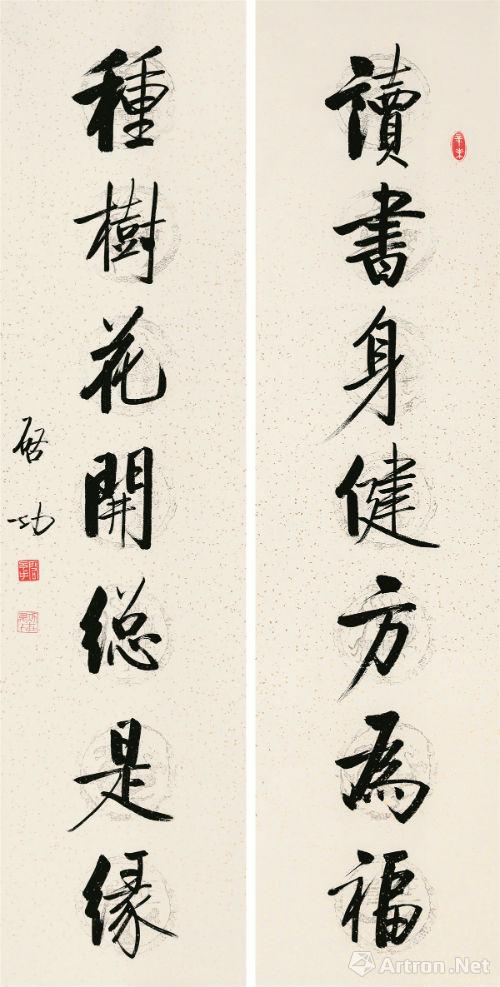 讀書身健方為福
種樹花開總是緣
啓功
Artron.Net